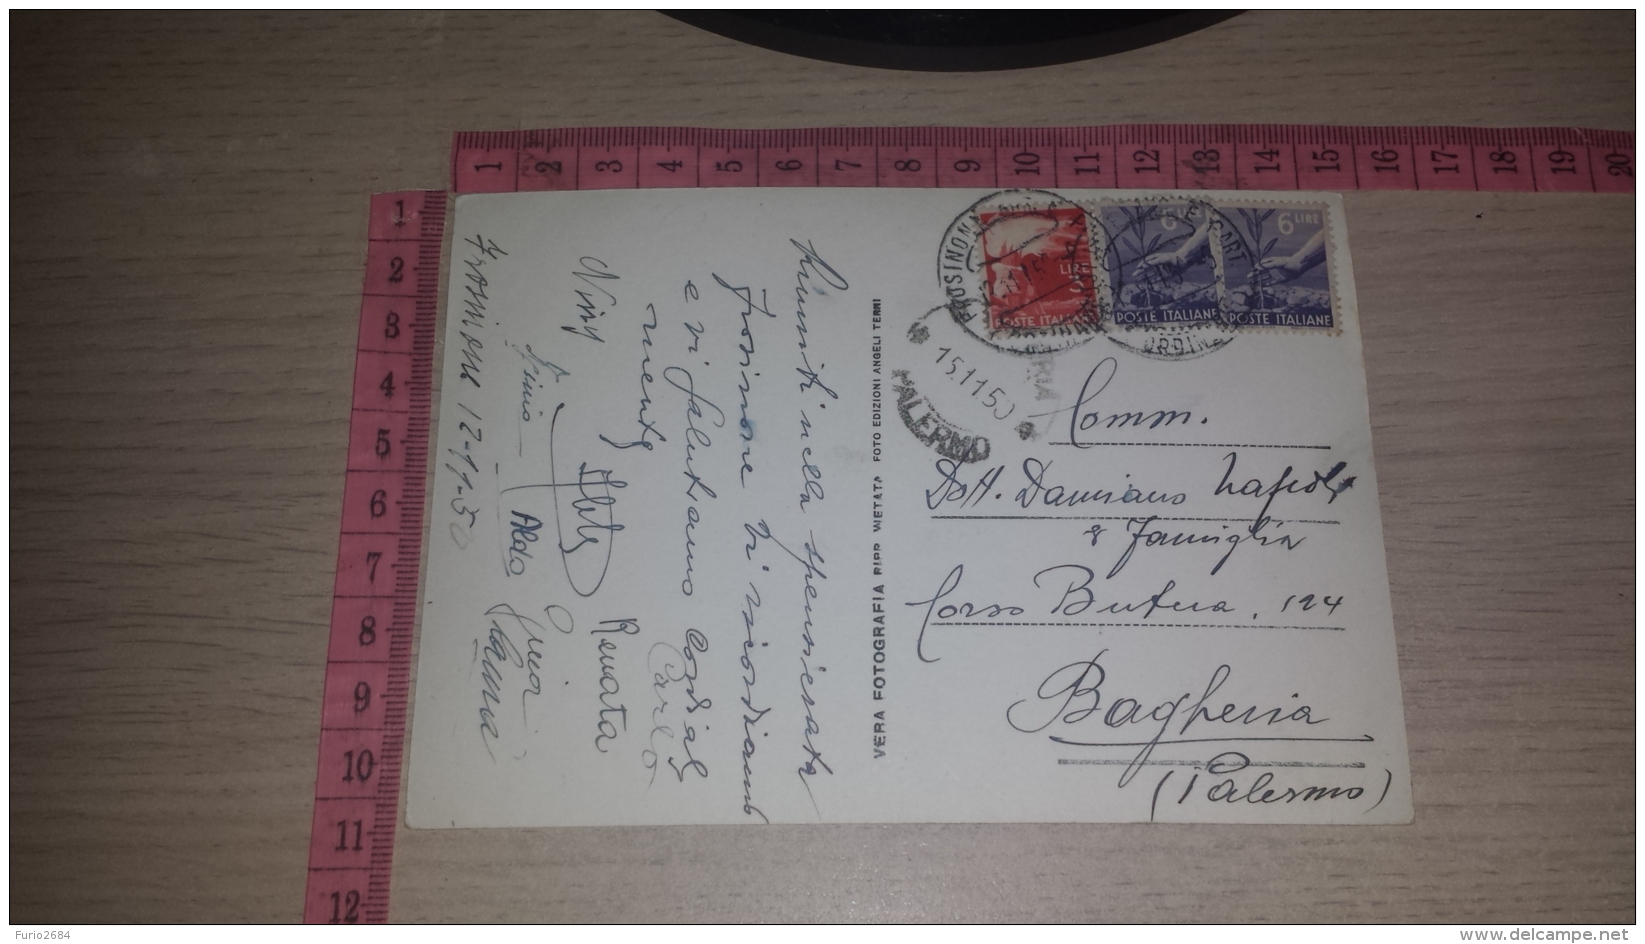 1 2 3 4 5 6 7 8 9 10 11 12 13 14 15 16 17 18 19 20
1
2
3
4
5
6
7
8
9
10
11
12
Frosinone 12-11-50
Riuniti nella spensierata
Frosinone Vi ricordiamo
e vi salutiamo cordial
mente
Carlo
Renata
Aldo
VERA FOTOGRAFIA RIPR. VIETATA FOTO EDIZIONI ANGELI TERNI
LIRE
POSTE ITALIANE
6
POSTE ITALIANE
6 LIRE
POSTE ITALIANE
FROSINONE
15.11.50
PALERMO
Comm.
Dott. Damiano Napoli
e Famiglia
Corso Butera, 124
Bagheria
(Palermo)
Furio2684
www.delcampe.net